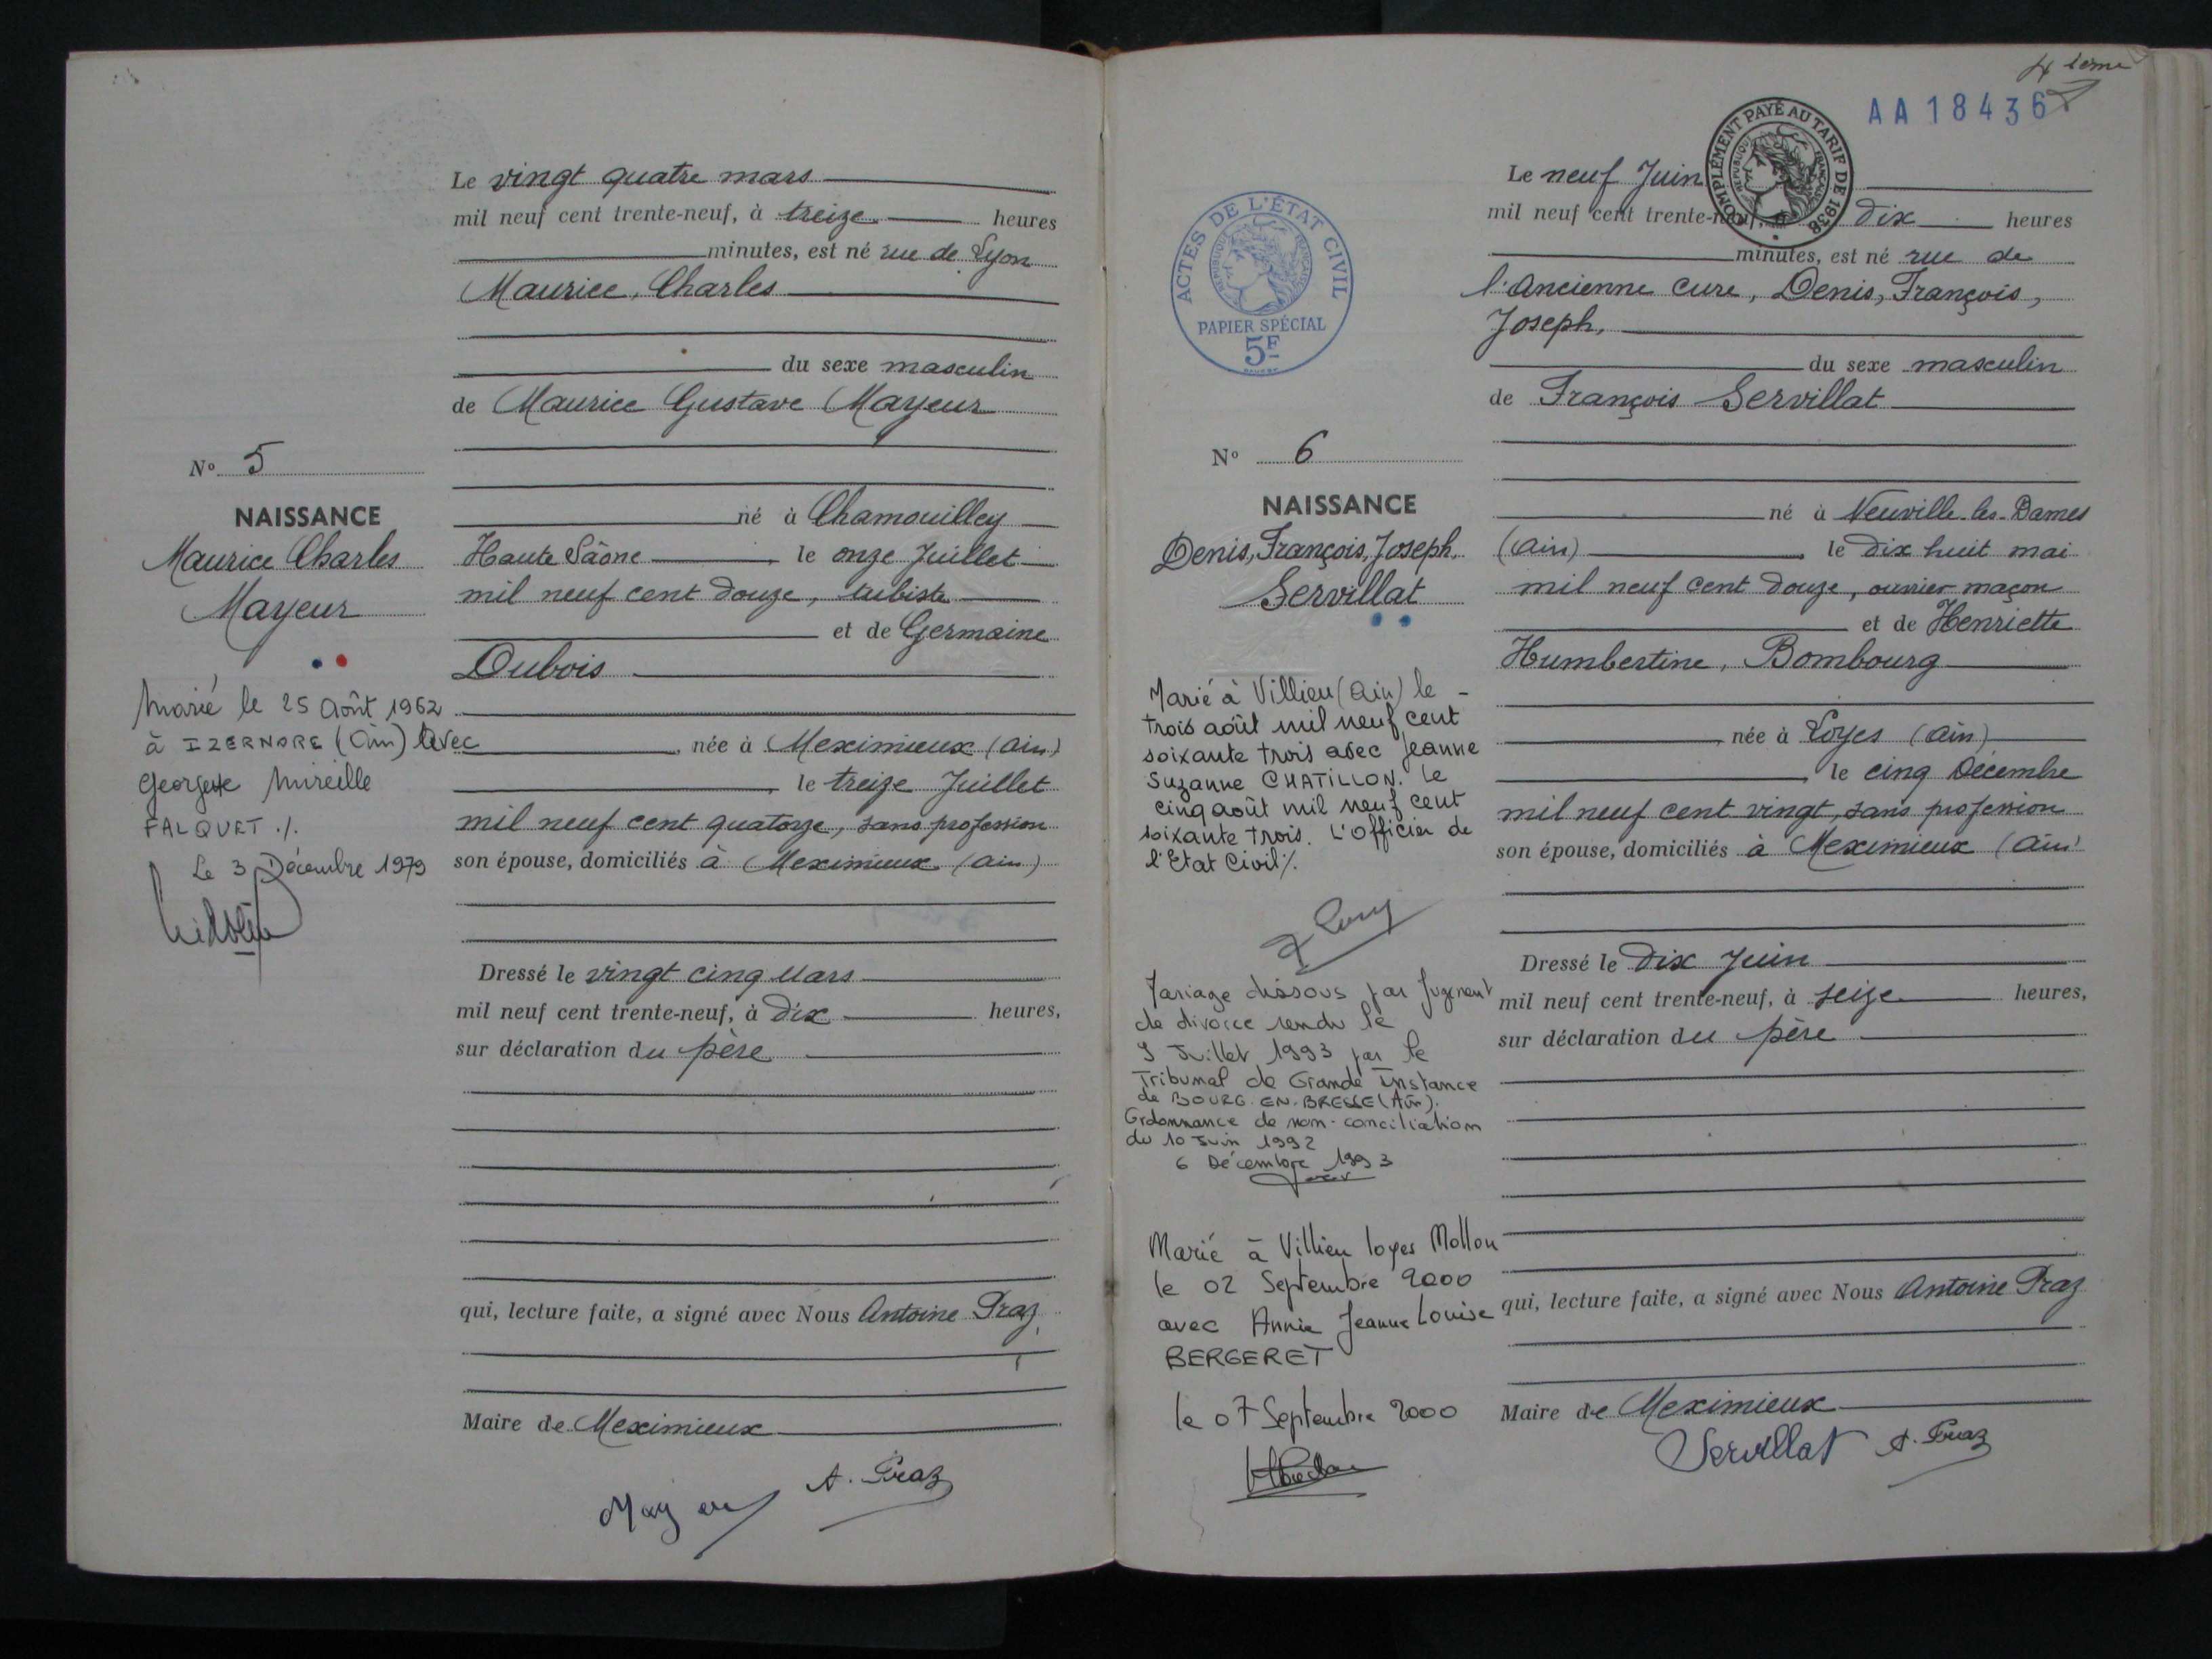 Le vingt quatre mars
mil neuf cent trente-neuf, à treize heures
minutes, est né rue de Lyon
Maurice, Charles
du sexe masculin
de Maurice Gustave Mayeur
né à Chamouilley
Haute Saône le onze Juillet
mil neuf cent douze, tubiste
et de Germaine
Dubois
née à Meximieux (Ain)
le treize Juillet
mil neuf cent quatorze, sans profession
son épouse, domiciliés à Meximieux (Ain)
Dressé le vingt cinq Mars
mil neuf cent trente-neuf, à dix heures,
sur déclaration du père
qui, lecture faite, a signé avec Nous Antoine Praz
Maire de Meximieux
A. Praz
Mayeur
N° 5
NAISSANCE
Maurice Charles
Mayeur
Marié le 25 Août 1962
à IZERNORE (Ain) avec
Georgette Mireille
FALQUET ./.
Le 3 Décembre 1979
4 ième
AA 18436
COMPLÉMENT PAYÉ AU TARIF DE 1938
REPUBLIQUE FRANÇAISE
Le neuf Juin
mil neuf cent trente-neuf, à dix heures
minutes, est né rue de
l'Ancienne cure, Denis, François,
Joseph,
du sexe masculin
de François Servillat
né à Neuville-les-Dames
(Ain) le dix huit mai
mil neuf cent douze, ouvrier maçon
et de Henriette
Humbertine, Bombourg
née à Loyes (Ain)
le cinq Décembre
mil neuf cent vingt, sans profession
son épouse, domiciliés à Meximieux (Ain)
Dressé le dix Juin
mil neuf cent trente-neuf, à seize heures,
sur déclaration du père
qui, lecture faite, a signé avec Nous Antoine Praz
Maire de Meximieux
Servillat A. Praz
ACTES DE L'ÉTAT CIVIL
REPUBLIQUE FRANÇAISE
PAPIER SPÉCIAL
5F
N° 6
NAISSANCE
Denis, François, Joseph.
Servillat
Marié à Villieu (Ain) le -
trois août mil neuf cent
soixante trois avec Jeanne
Suzanne CHATILLON. Le
cinq août mil neuf cent
soixante trois. L'Officier de
l'Etat Civil ./.
Mariage dissous par Jugement
de divorce rendu le
9 Juillet 1993 par le
Tribunal de Grande Instance
de BOURG-EN-BRESSE (Ain).
Ordonnance de non-conciliation
du 10 Juin 1992
6 Décembre 1993
Marié à Villieu loyes Mollon
le 02 Septembre 2000
avec Annie Jeanne Louise
BERGERET
le 07 Septembre 2000